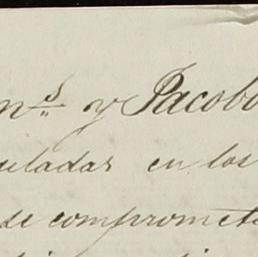 n.s y Jacobo
uladas en los
se compromet